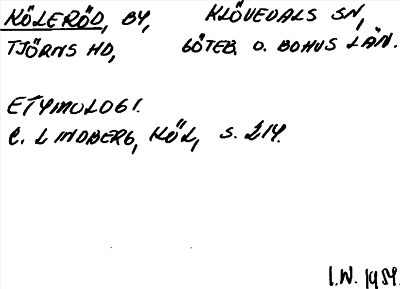 KÖLERÖD, BY, KLÖVEDALS SN,
TJÖRNS HD, GÖTEB. O. BOHUS LÄN.
ETYMOLOGI.
C. LINDBERG, KÖL, S. 214.
I.W. 1984.